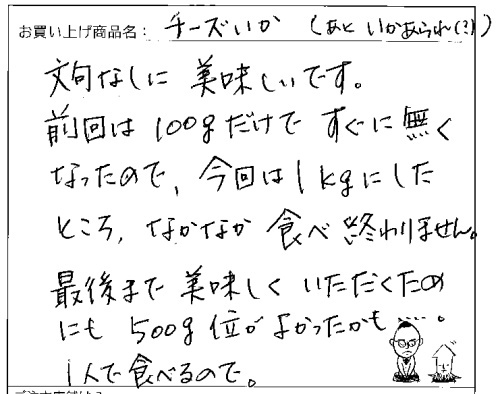 お買い上げ商品名: チーズいか (あと いかあられ(?))
文句なしに 美味しいです。
前回は 100gだけで すぐに 無く
なったので、今回は 1kgにした
ところ, なかなか 食べ 終わりません。
最後まで 美味しく いただくため
にも 500g 位が よかったかも….。
1人で 食べるので。